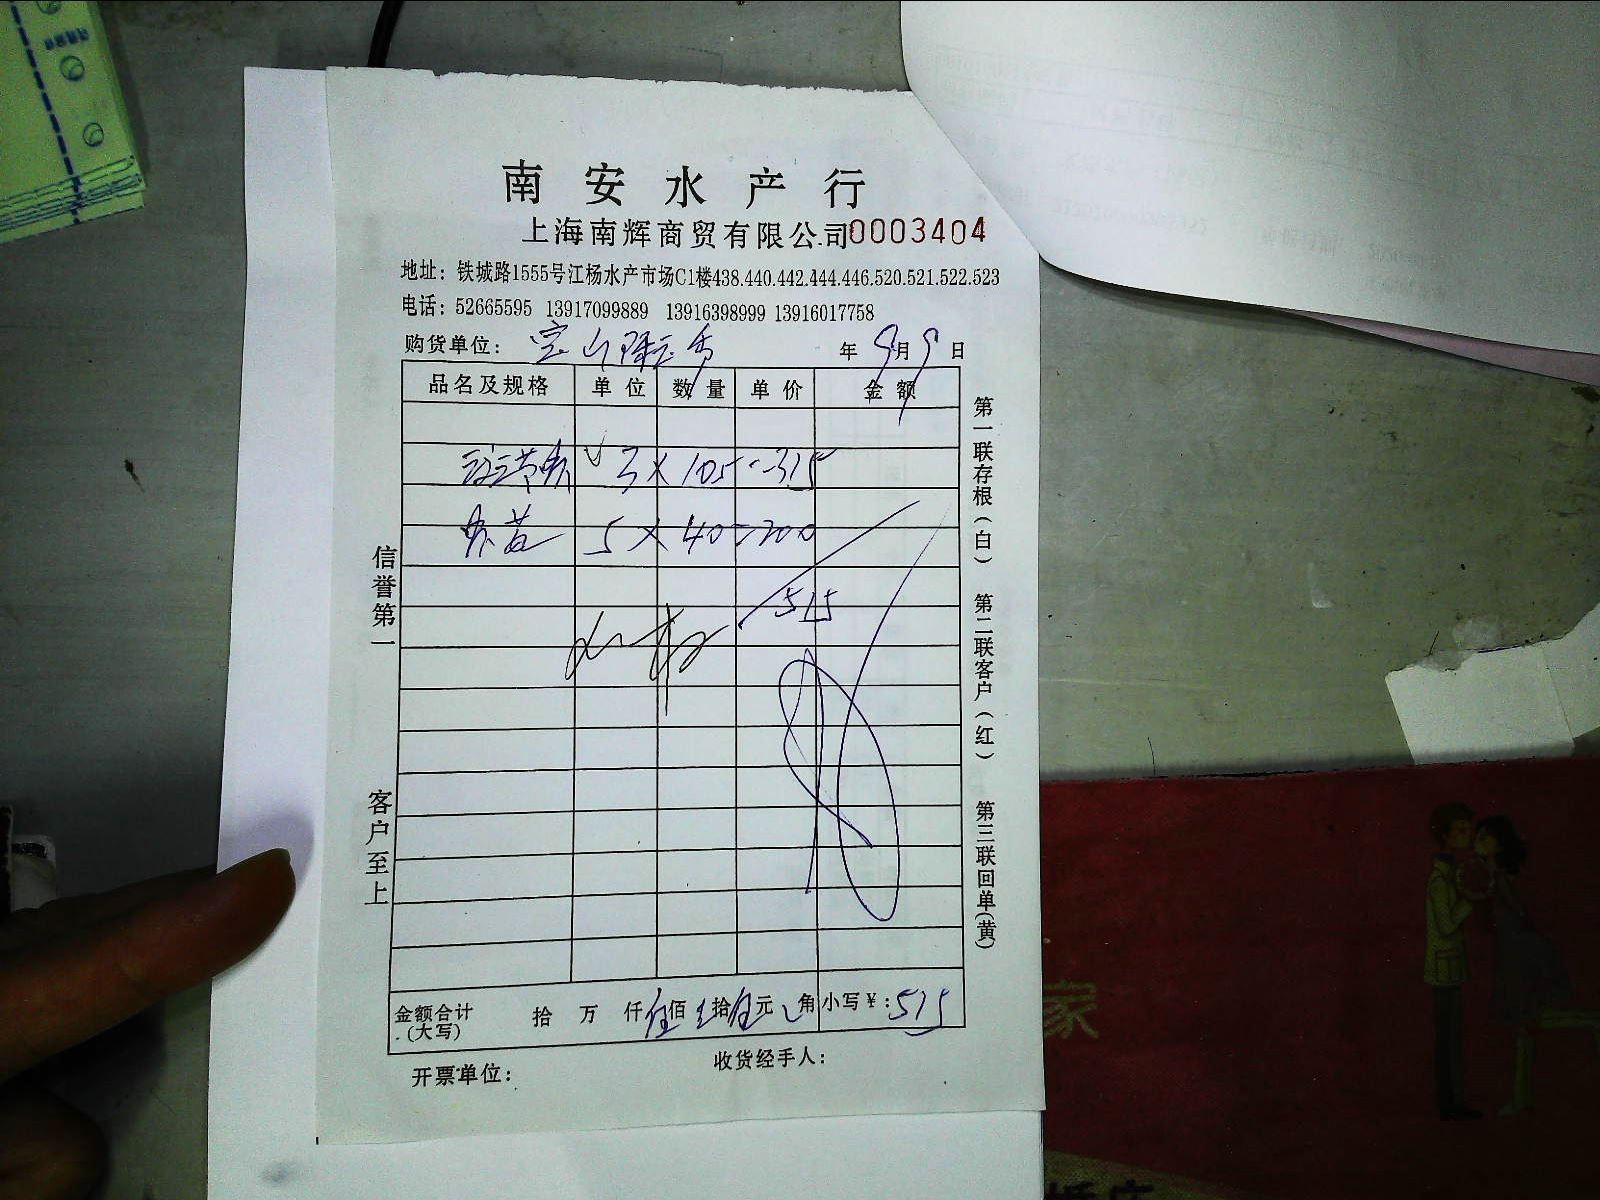 南安水产行
上海南辉商贸有限公司0003404
地址：铁城路1555号江杨水产市场C1楼438.440.442.444.446.520.521.522.523
电话：52665595 13917099889 13916398999 13916017758
购货单位：宝山 年9月9日
品名及规格 单位 数量 单价 金额
3×105=315
虾 5×40=200
515
金额合计(大写) 拾 万 仟伍佰壹拾伍元 角 小写￥：515
开票单位： 收货经手人：
信誉第一
客户至上
第一联存根(白) 第二联客户(红) 第三联回单(黄)
家